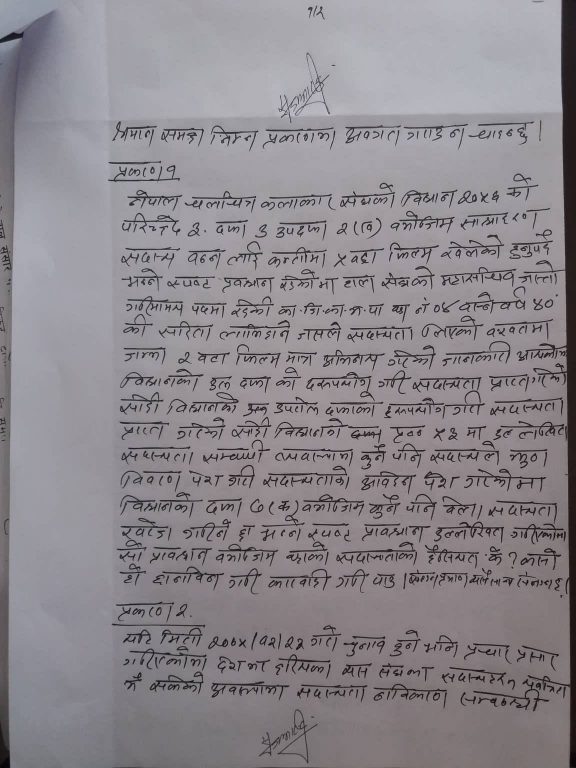 १/२
श्रीमान समक्ष निम्न प्रकरणमा अवगत गराउन चाहन्छु ।
प्रकरण १
नेपाल चलचित्र कलाकार संघको विधान २०५६ को
परिच्छेद २. दफा ३ उपदफा २(ख) बमोजिम साधारण
सदस्य बन्न लाई कम्तीमा ५ वटा फिल्म खेलेको हुनुपर्ने
भन्ने स्पष्ट प्रावधान रहेकोमा हाल संघको महासचिव जस्तो
गरिमामय पदमा रहेकी का.जि.का.म.न.पा वडा नं ०४ बस्ने वर्ष ४०
की सरिता लामिछाने जसले सदस्यता लिएको बखतमा
जम्मा २ वटा फिल्म मात्र अभिनय गरेको जानकारी
विधानको दफा को दुरूपयोग गरी सदस्यता प्राप्त गरेको
सोही विधानको दफाको दुरूपयोग गरी सदस्यता
प्राप्त गरेको सोही विधानको ५३ मा उल्लेखित
सदस्यता सम्बन्धी व्यवस्थामा कुनै पनि सदस्यले झुठा
विवरण पेश गरी सदस्यताको आवेदन पेश गरेकोमा
विधानको दफा ७(क) बमोजिम कुनै पनि बेला सदस्यता
खारेज गरिने छ भन्ने स्पष्ट प्रावधान उल्लेखित गरिएकोमा
सो प्रावधान बमोजिम सदस्यताको हैसियत के ? कस्तो
हो छानविन गरी कारवाही गरी पाउ
प्रकरण २.
यहि मिती गते चुनाव हुने भनि प्रचार प्रसार
गरिएकोमा देशभर छरिएका यस संघका सदस्यहरु
अवस्थामा सदस्यता नविकरण सम्बन्धी